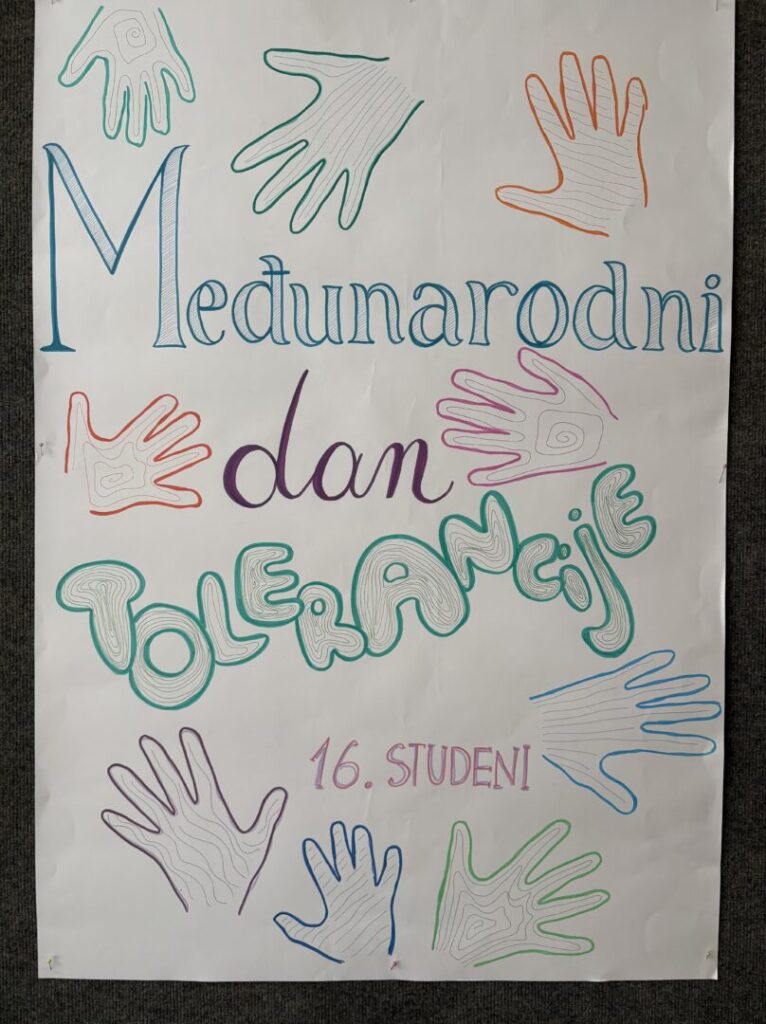 Međunarodni
dan
TOLERANCIJE
16. STUDENI